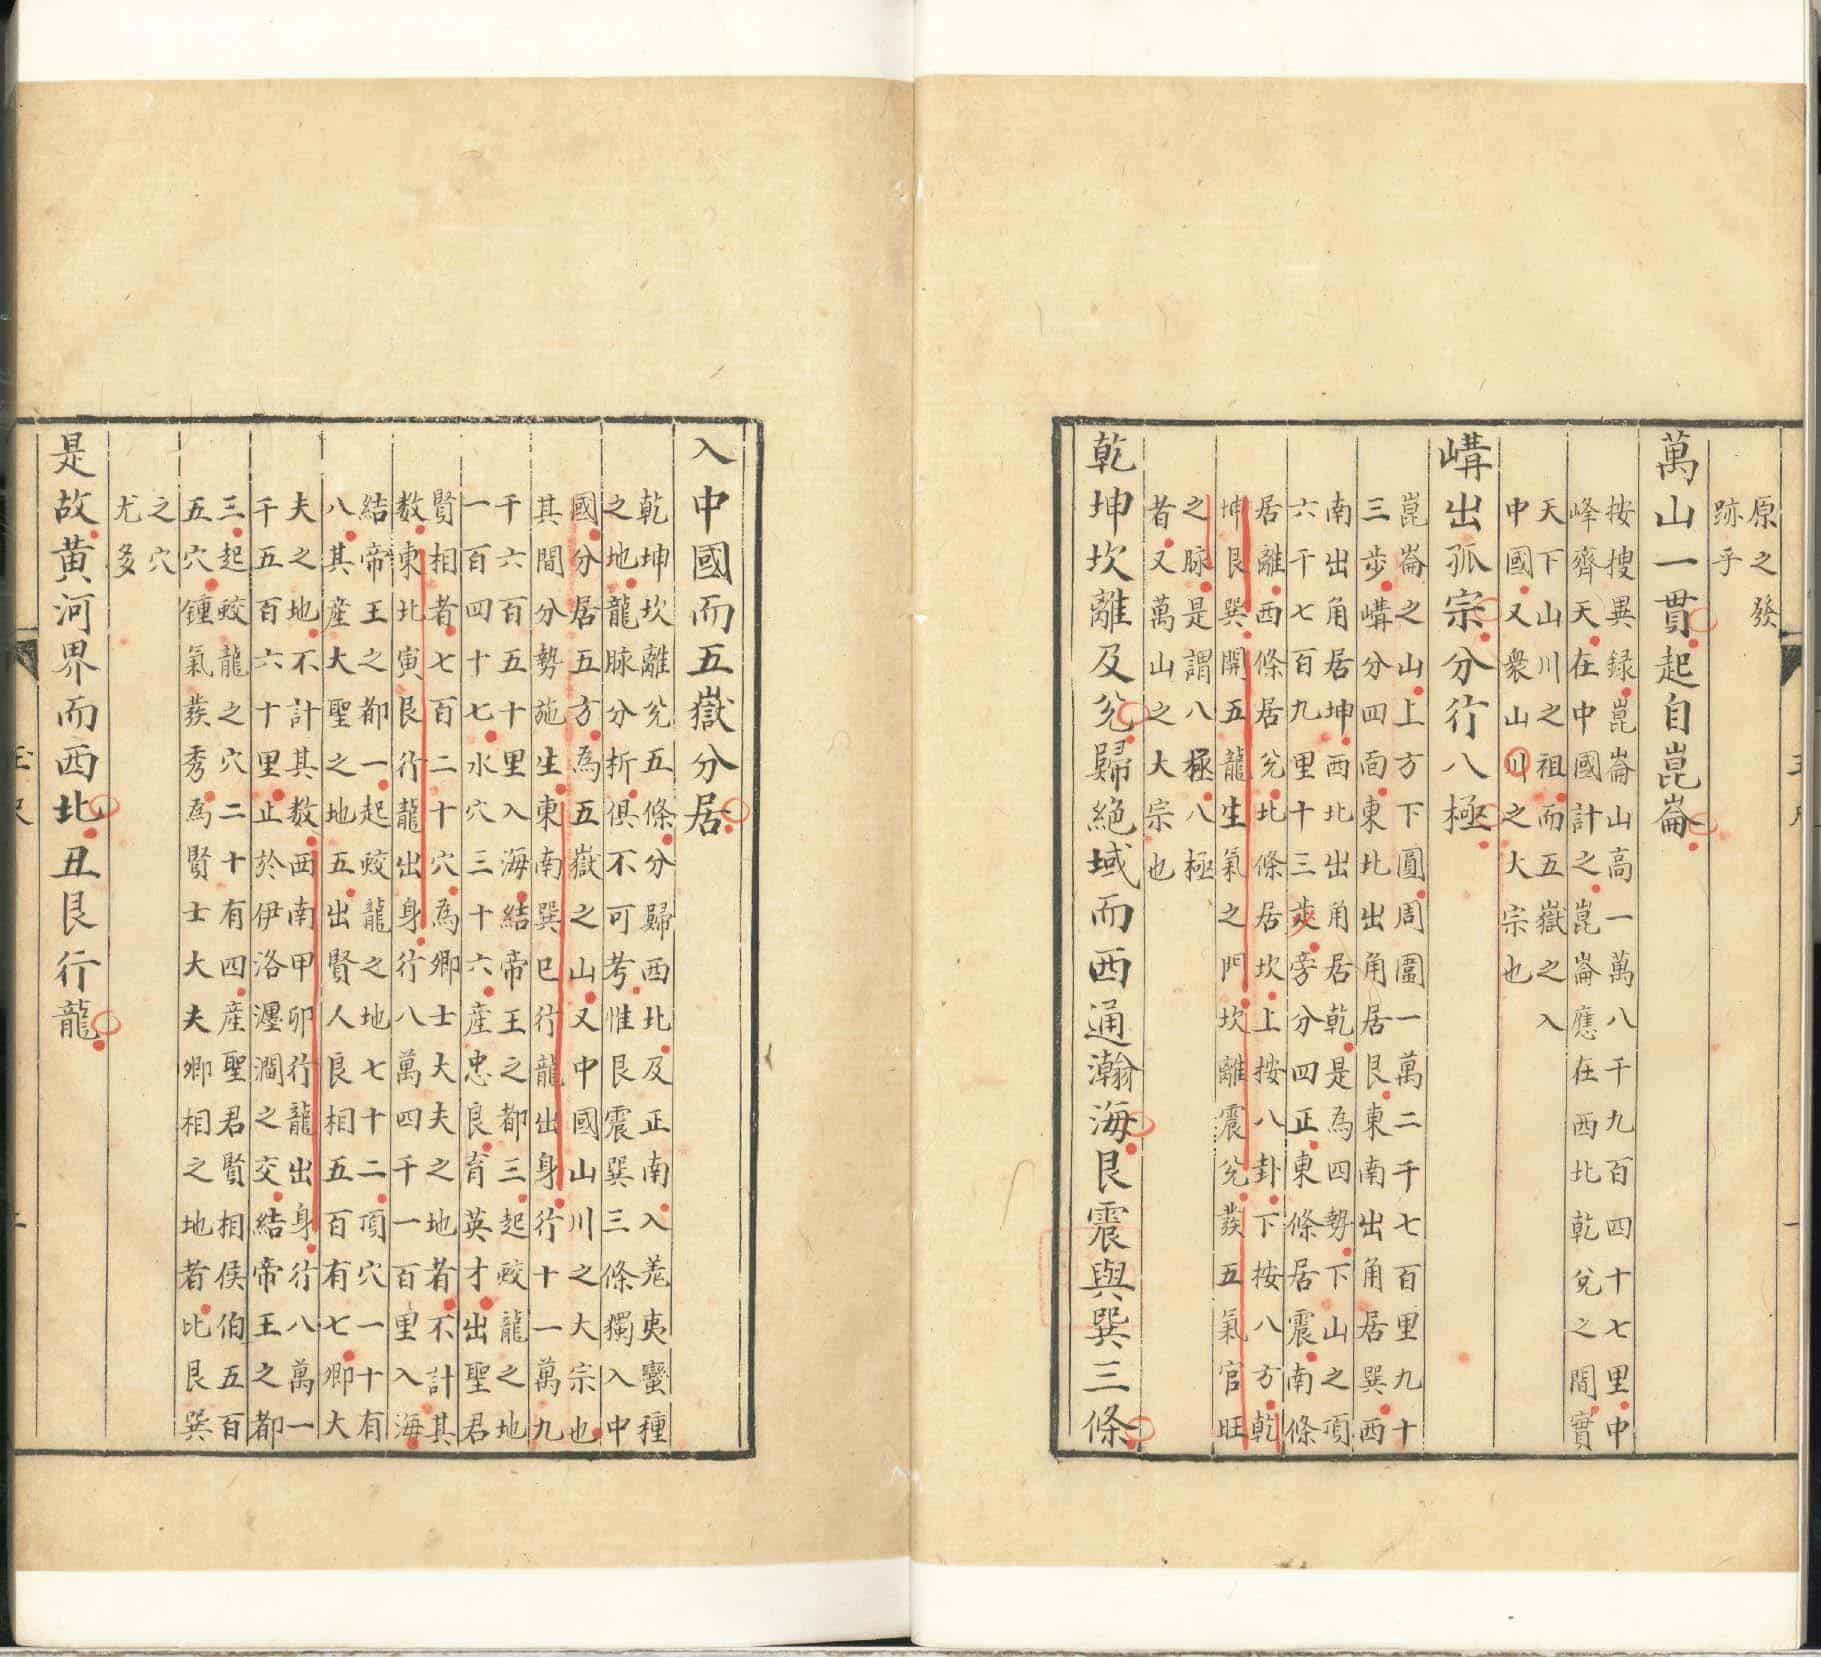 原之發
跡乎
萬山一貫起自崑崙
按搜異録崑崙山高一萬八千九百四十七里中
峰齊天在中國計之崑崙應在西北乾兌之間實
天下山川之祖而五嶽之入
中國又衆山川之大宗也
嵴出孤宗分行八極
崑崙之山上方下圓周圍一萬二千七百里九十
三步嵴分四面東北出角居艮東南出角居巽西
南出角居坤西北出角居乾是為四勢下山之項
六千七百九里十三步旁分四正東條居震南條
居離西條居兌北條居坎上按八卦下按八方乾
坤艮巽開五龍生氣之門坎離震兌發五氣官旺
之脉是謂八極八極
者又萬山之大宗也
乾坤坎離及兌歸絶域而西通瀚海艮震與巽三條
入中國而五嶽分居
乾坤坎離兌五條分歸西北及正南入羌夷蠻種
之地龍脉分折俱不可考惟艮震巽三條獨入中
國分居五方為五嶽之山又中國山川之大宗也
其間分勢施生東南巽巳行龍出身行十一萬九
千六百五十里入海結帝王之都三起蛟龍之地
一百四十七水穴三十六產忠良育英才出聖君
賢相者七百二十穴為卿士大夫之地者不計其
数東北寅艮行龍出身行八萬四千一百里入海
結帝王之都一起蛟龍之地七十二頂穴一十有
八其產大聖之地五出賢人良相五百有七卿大
夫之地不計其数西南甲卯行龍出身行八萬一
千五百六十里止於伊洛瀍澗之交結帝王之都
三起蛟龍之穴二十有四產聖君賢相侯伯五百
五穴鍾氣發秀為賢士大夫卿相之地者比艮巽
之穴
尤多
是故黄河界而西北丑艮行龍